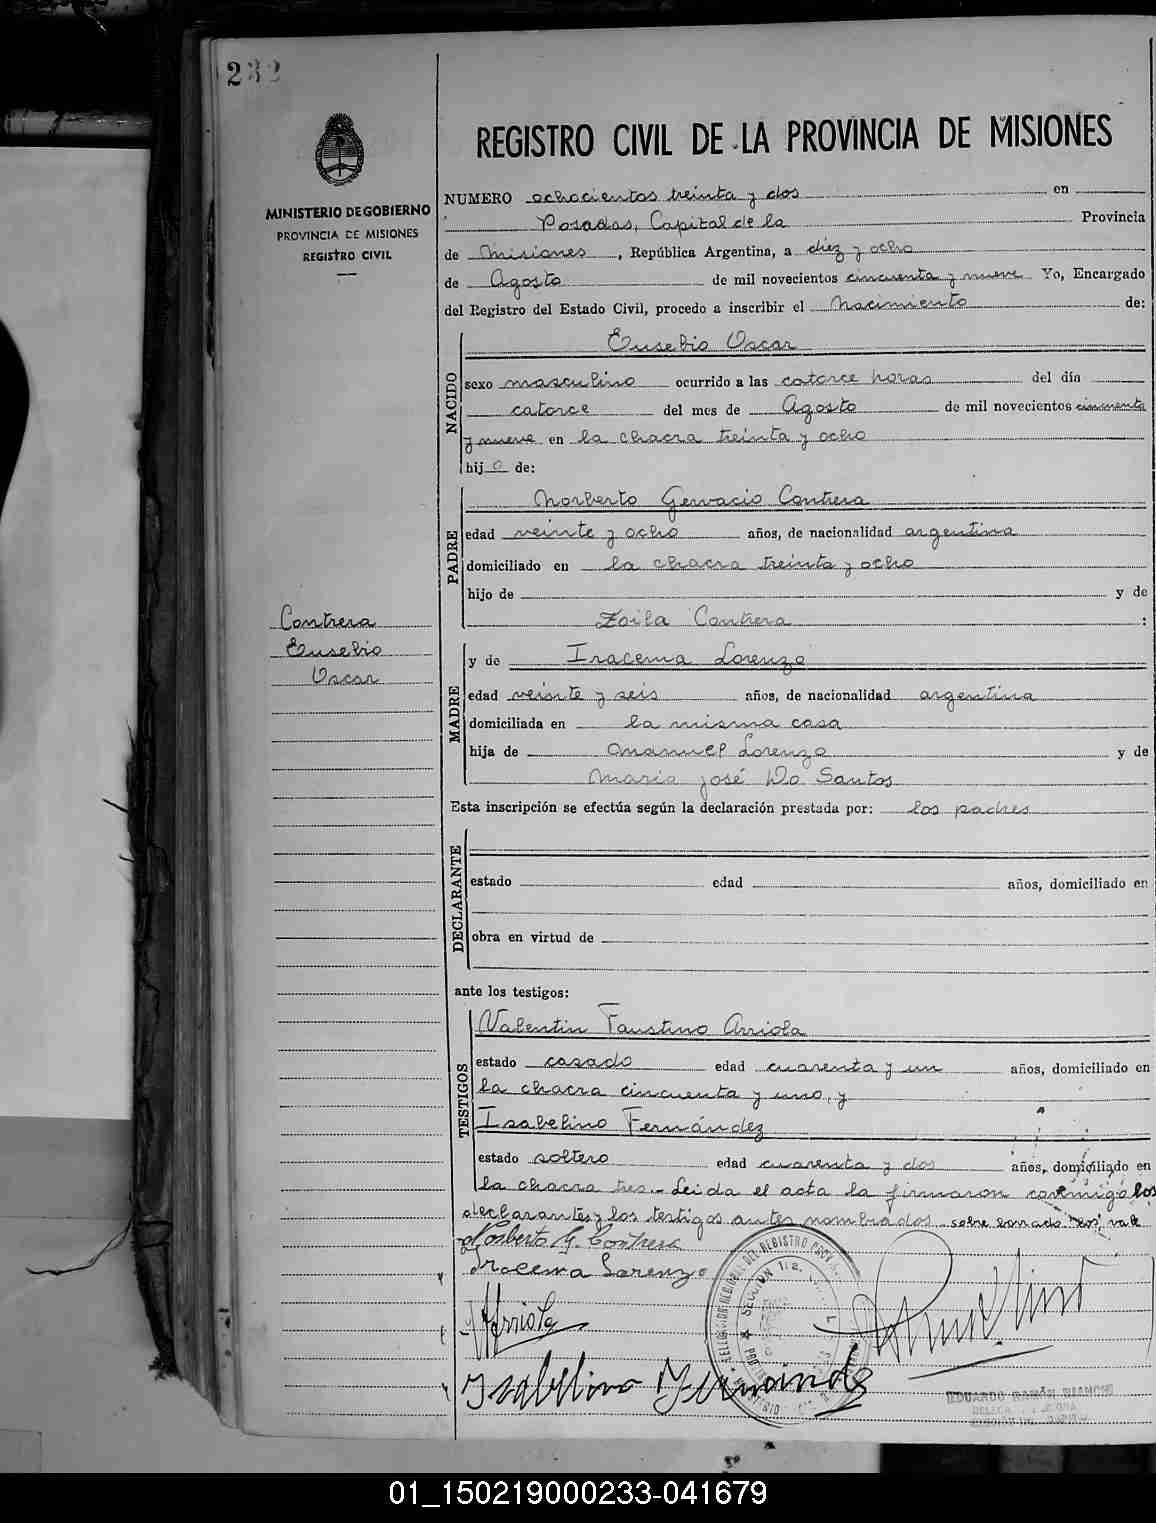 232
MINISTERIO DE GOBIERNO
PROVINCIA DE MISIONES
REGISTRO CIVIL
REGISTRO CIVIL DE LA PROVINCIA DE MISIONES
NUMERO ochocientos treinta y dos en
Posadas, Capital de la Provincia
de Misiones, República Argentina, a diez y ocho
de Agosto de mil novecientos cincuenta y nueve Yo, Encargado
del Registro del Estado Civil, procedo a inscribir el Nacimiento de:
NACIDO
Eusebio Oscar
sexo masculino ocurrido a las catorce horas del día
catorce del mes de Agosto de mil novecientos cincuenta
y nueve en la chacra treinta y ocho
hijo de:
PADRE
Norberto Gervacio Contrera
edad veinte y ocho años, de nacionalidad argentina
domiciliado en la chacra treinta y ocho
hijo de y de
Zoila Contrera :
Contrera
Eusebio
Oscar
MADRE
y de Iracema Lorenzo
edad veinte y seis años, de nacionalidad argentina
domiciliada en la misma casa
hija de Manuel Lorenzo y de
María José Do Santos
Esta inscripción se efectúa según la declaración prestada por: los padres
DECLARANTE
estado edad años, domiciliado en
obra en virtud de
ante los testigos:
TESTIGOS
Valentin Faustino Arriola
estado casado edad cuarenta y un años, domiciliado en
la chacra cincuenta y uno, y
Isabelino Fernández
estado soltero edad cuarenta y dos años, domiciliado en
la chacra tres.- Leida el acta la firmaron conmigo los
declarantes y los testigos antes nombrados. sobre borrado "los", vale
Norberto G. Contrera
Iracema Lorenzo
Arriola
Isabelino Fernández
SECCION 1ra.
EDUARDO RAMÓN BIANCHI
01_150219000233-041679